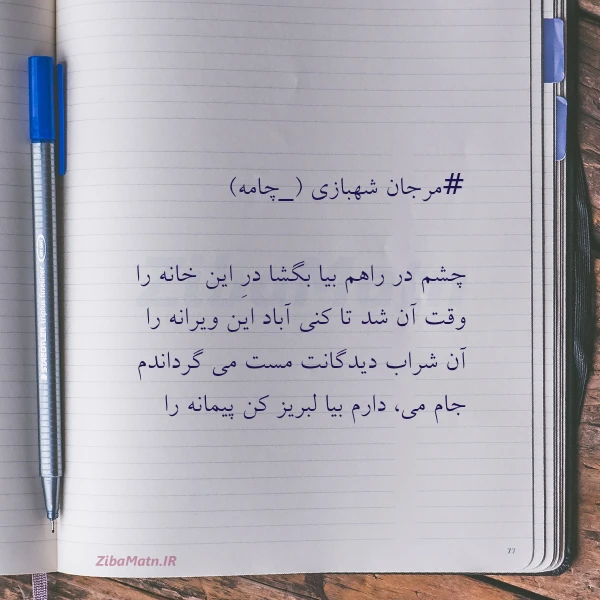 #مرجان شهبازی (_چامه)
چشم در راهم بیا بگشا درِ این خانه را
وقت آن شد تا کنی آباد این ویرانه را
آن شراب دیدگانت مست می گرداندم
جام می، دارم بیا لبریز کن پیمانه را
77
ZibaMatn.IR